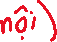 nội)